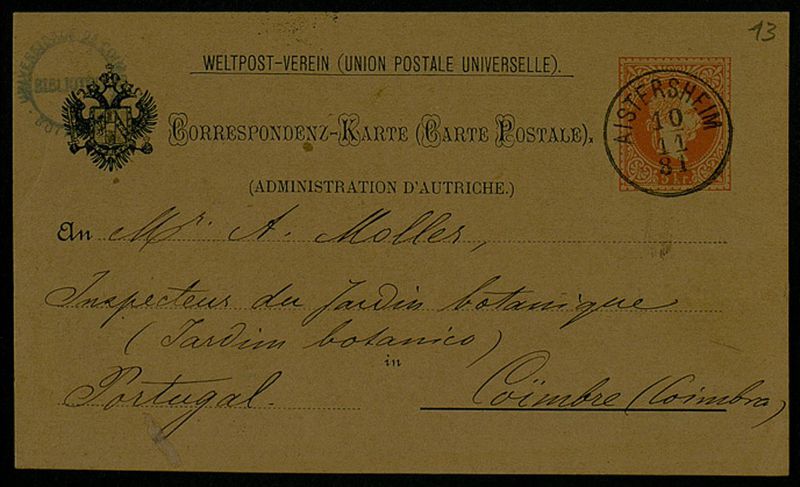 13
WELTPOST-VEREIN (UNION POSTALE UNIVERSELLE).
CORRESPONDENZ-KARTE (CARTE POSTALE).
(ADMINISTRATION D'AUTRICHE.)
AISTERSHEIM
10
11
81
5 Kr.
An Mr. A. Moller,
Inspecteur du Jardin botanique
(Jardim botanico)
in
Portugal. Coïmbre (Coimbra)